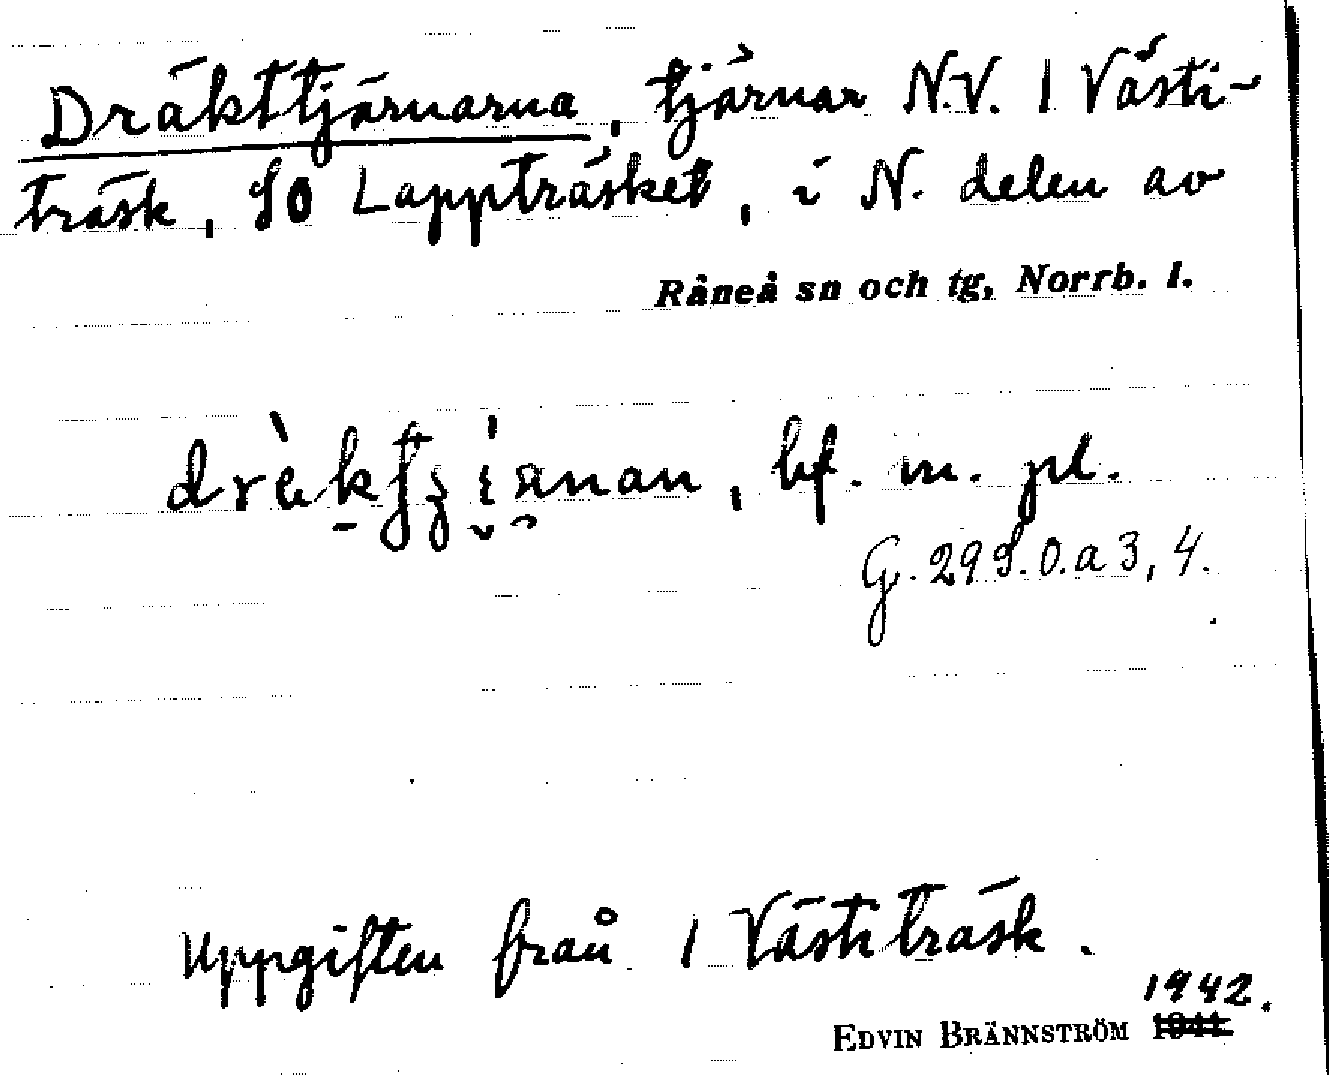 Dräkttjärnarna, tjärnar N.V. 1 Västi-
träsk, SO Lappträsket, i N. delen av
Råneå sn och tg, Norrb. l.
bf. m. pl.
G. 29 S.O. a 3, 4.
Uppgiften från 1 Västiträsk.
1942.
EDVIN BRÄNNSTRÖM 1941